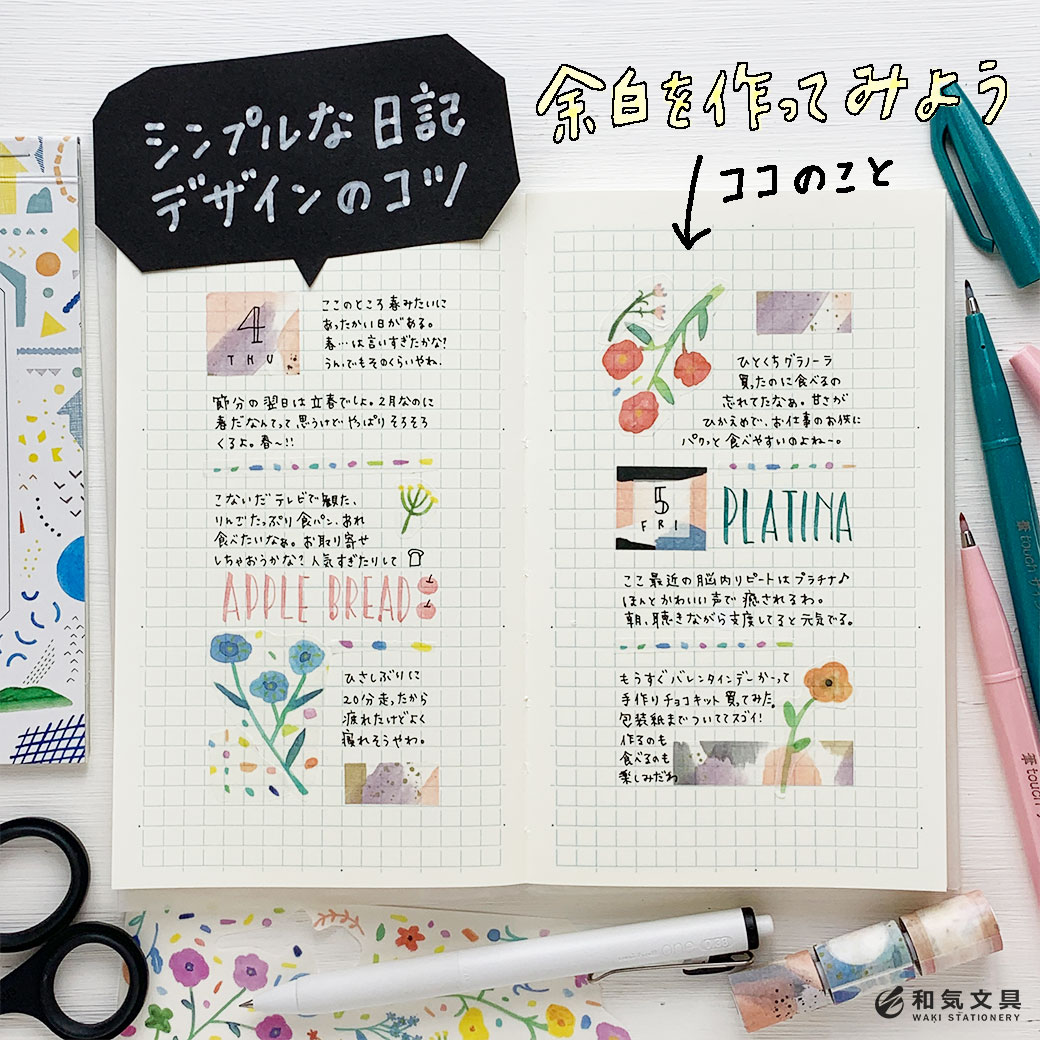 シンプルな日記
デザインのコツ
余白を作ってみよう
ココのこと
4
THU
ここのところ春みたいに
あったかい日がある。
春…は言いすぎたかな?
うん、でもそのくらいやね。
節分の翌日は立春でしょ。2月なのに
春だなんてって思うけど やっぱり そろそろ
くるよ。春~!!
こないだテレビで観た、
りんごたっぷり食パン、あれ
食べたいなぁ。お取り寄せ
しちゃおうかな?人気すぎたりして
APPLE BREAD
ひさしぶりに
20分走ったから
疲れたけどよく
寝れそうやわ。
ひとくちグラノーラ
買ったのに食べるの
忘れてたなぁ。甘さが
ひかえめで、お仕事のお供に
パクッと食べやすいのよね~。
5
FRI
PLATINA
ここ最近の脳内リピートはプラチナ♪
ほんとかわいい声で癒されるわ。
朝、聴きながら支度してると元気でる。
もうすぐバレンタインデーかーって
手作りチョコキット買ってみた。
包装紙までついててスゴイ!
作るのも
食べるのも
楽しみだわ
筆touch サ
筆touch
和気文具
WAKI STATIONERY